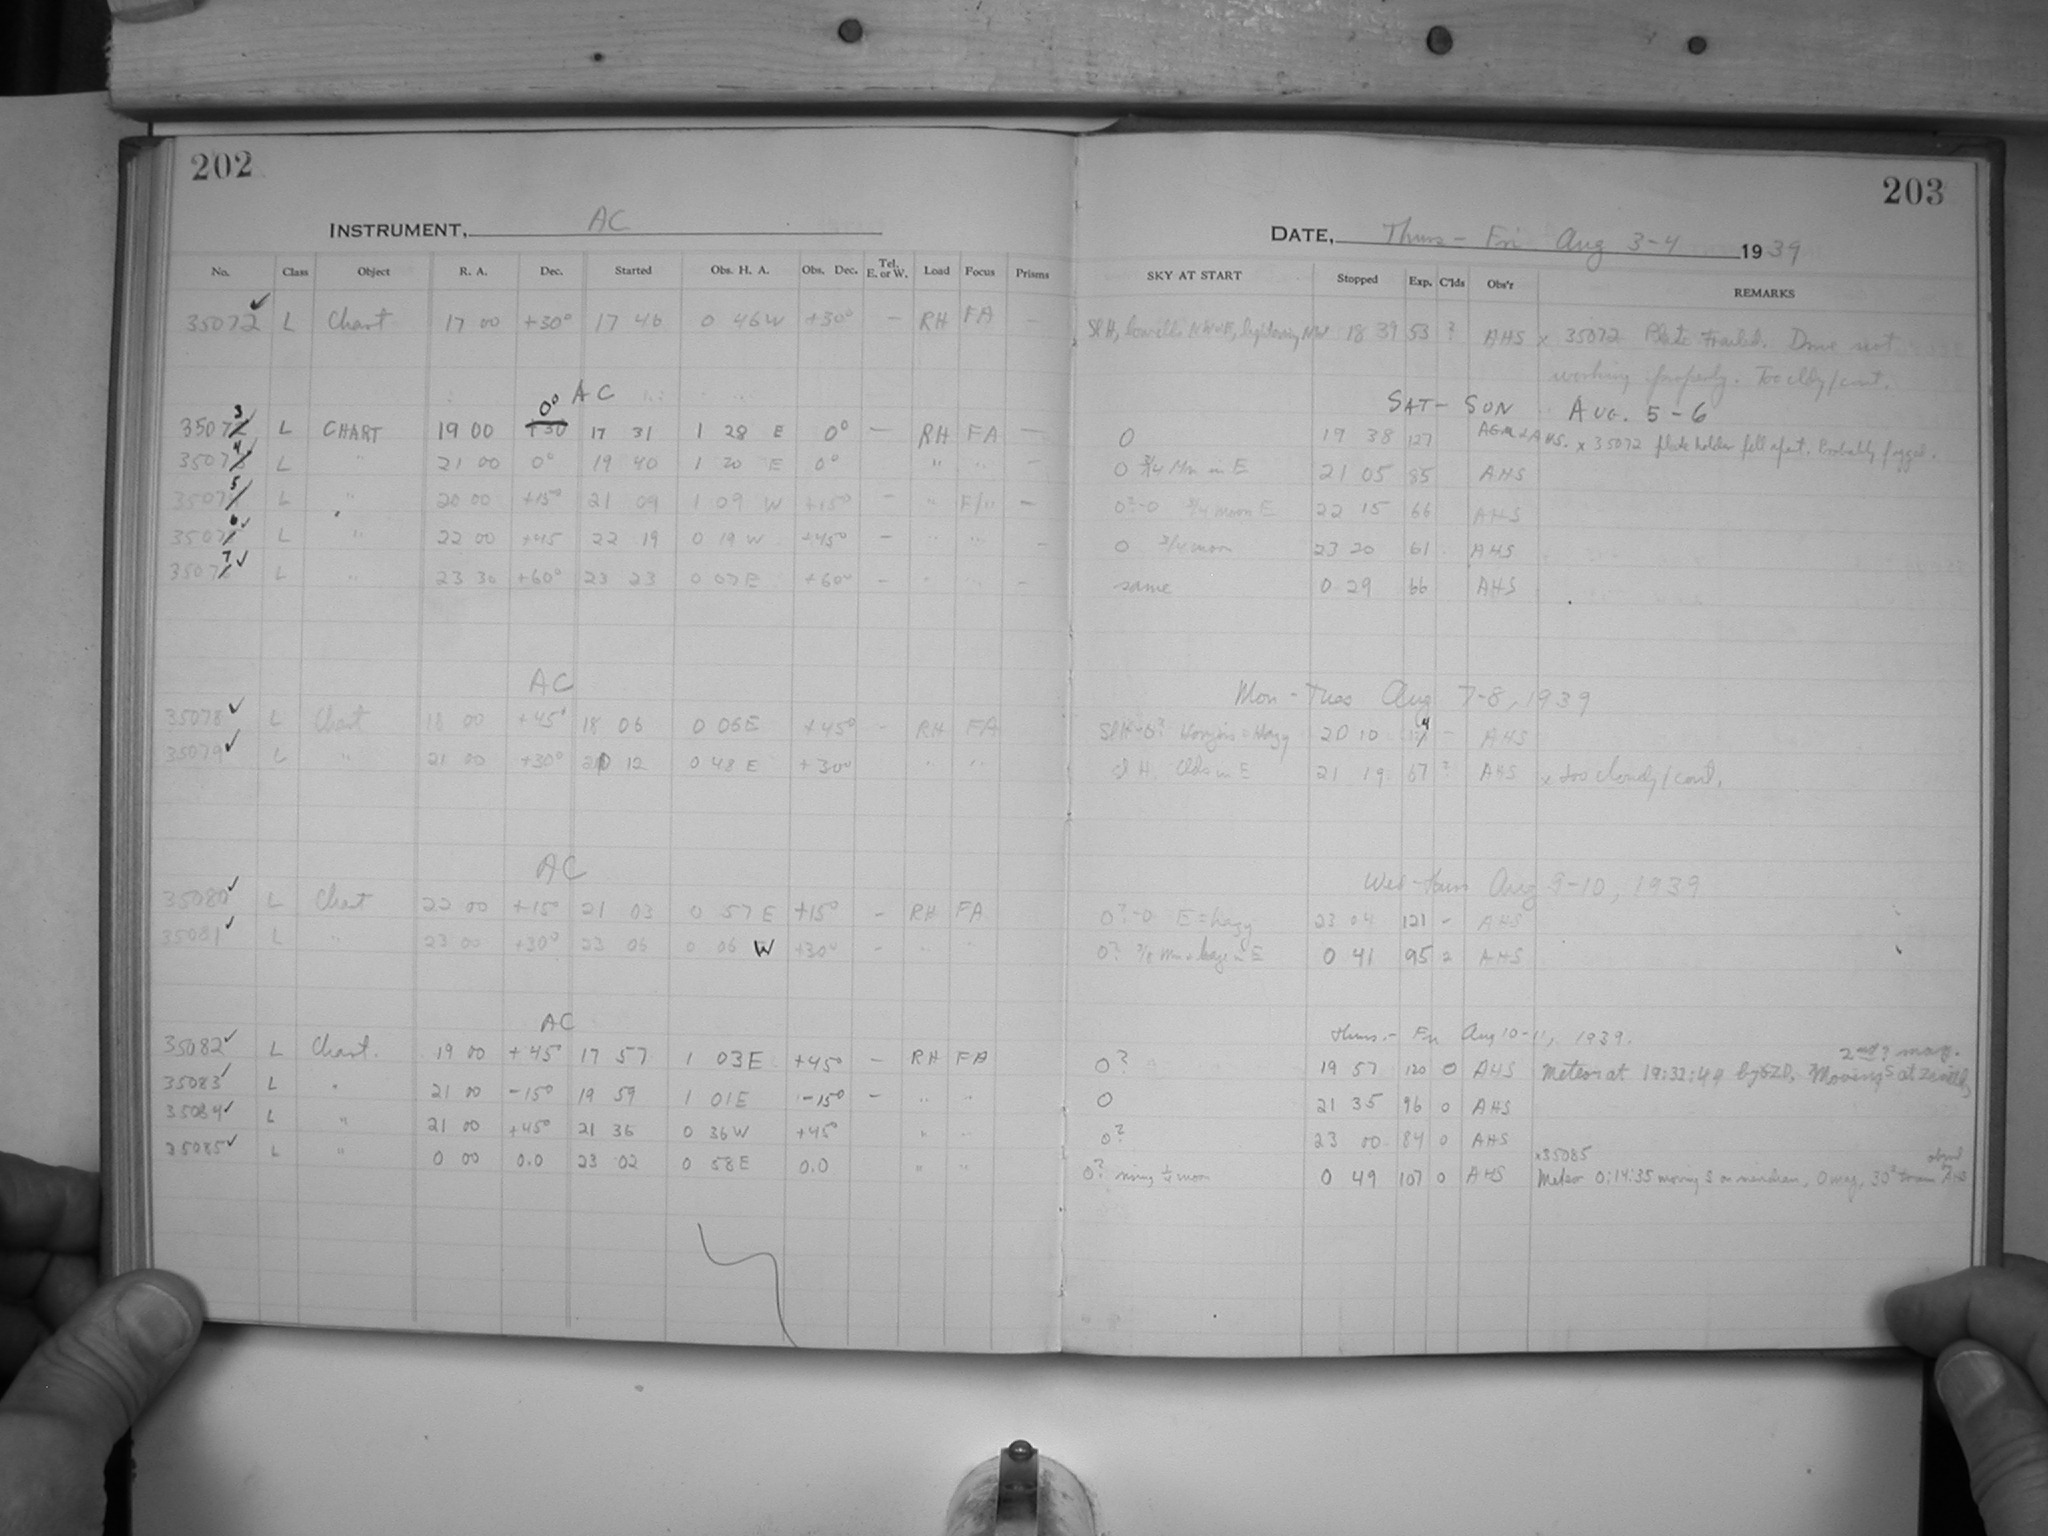 202
203
INSTRUMENT, AC
DATE, Thurs - Fri Aug 3-4 1939
No. Class Object R. A. Dec. Started Obs. H. A. Obs. Dec. Tel. E. or W. Load Focus Prisms SKY AT START Stopped Exp. C'lds Obs'r REMARKS
35072 ✓ L Chart 17 00 +30° 17 46 0 46 W +30° - RH FA - Sl H, low clds NW-E, lightning NW 18 39 53 ? AHS x 35072 Plate trailed. Dome not
working properly. Too cldy/cont.
AC SAT - SUN AUG. 5-6
35073 L CHART 19 00 0° 17 31 1 28 E 0° - RH FA - 0 19 38 127 AGM & AHS. x 35072 plate holder fell apart. Probably fogged.
35074 L " 21 00 0° 19 40 1 20 E 0° " " - 0 3/4 Mn in E 21 05 85 AHS
35075 L " 20 00 +15° 21 09 1 09 W +15° - " F/" - 0?-0 3/4 moon E 22 15 66 AHS
35076 ✓ L " 22 00 +45 22 19 0 19 W +45° - " " - 0 3/4 moon 23 20 61 AHS
35077 ✓ L " 23 30 +60° 23 23 0 07 E +60° - " " - same 0 29 66 AHS
AC Mon - Tues Aug 7-8, 1939
35078 ✓ L Chart 18 00 +45° 18 06 0 06 E +45° - RH FA Sl H-0? Horizon = Hazy 20 10 124 - AHS
35079 ✓ L " 21 00 +30° 20 12 0 48 E +30° " " Sl H. Clds in E 21 19 67 ? AHS x too cloudy/cont.
AC Wed - Thurs Aug 9-10, 1939
35080 ✓ L Chart 22 00 +15° 21 03 0 57 E +15° - RH FA 0?-0 E = hazy 23 04 121 - AHS
35081 ✓ L " 23 00 +30° 23 06 0 06 W +30° - " " 0? Mn & haze in E 0 41 95 2 AHS
AC Thurs. - Fri Aug 10-11, 1939.
35082 ✓ L Chart. 19 00 +45° 17 57 1 03 E +45° - RH FA 0? 19 57 120 0 AHS Meteor at 19:32:49 by Moving S at zenith, 2nd? mag.
35083 ✓ L " 21 00 -15° 19 59 1 01 E -15° - " " 0 21 35 96 0 AHS
35084 ✓ L " 21 00 +45° 21 36 0 36 W +45° " " 0? 23 00 84 0 AHS
35085 ✓ L " 0 00 0.0 23 02 0 58 E 0.0 " " 0? rising 1/4 moon 0 49 107 0 AHS x35085
Meteor 0:14:35 moving S on meridian, 0 mag, 30° train obsd by AHS